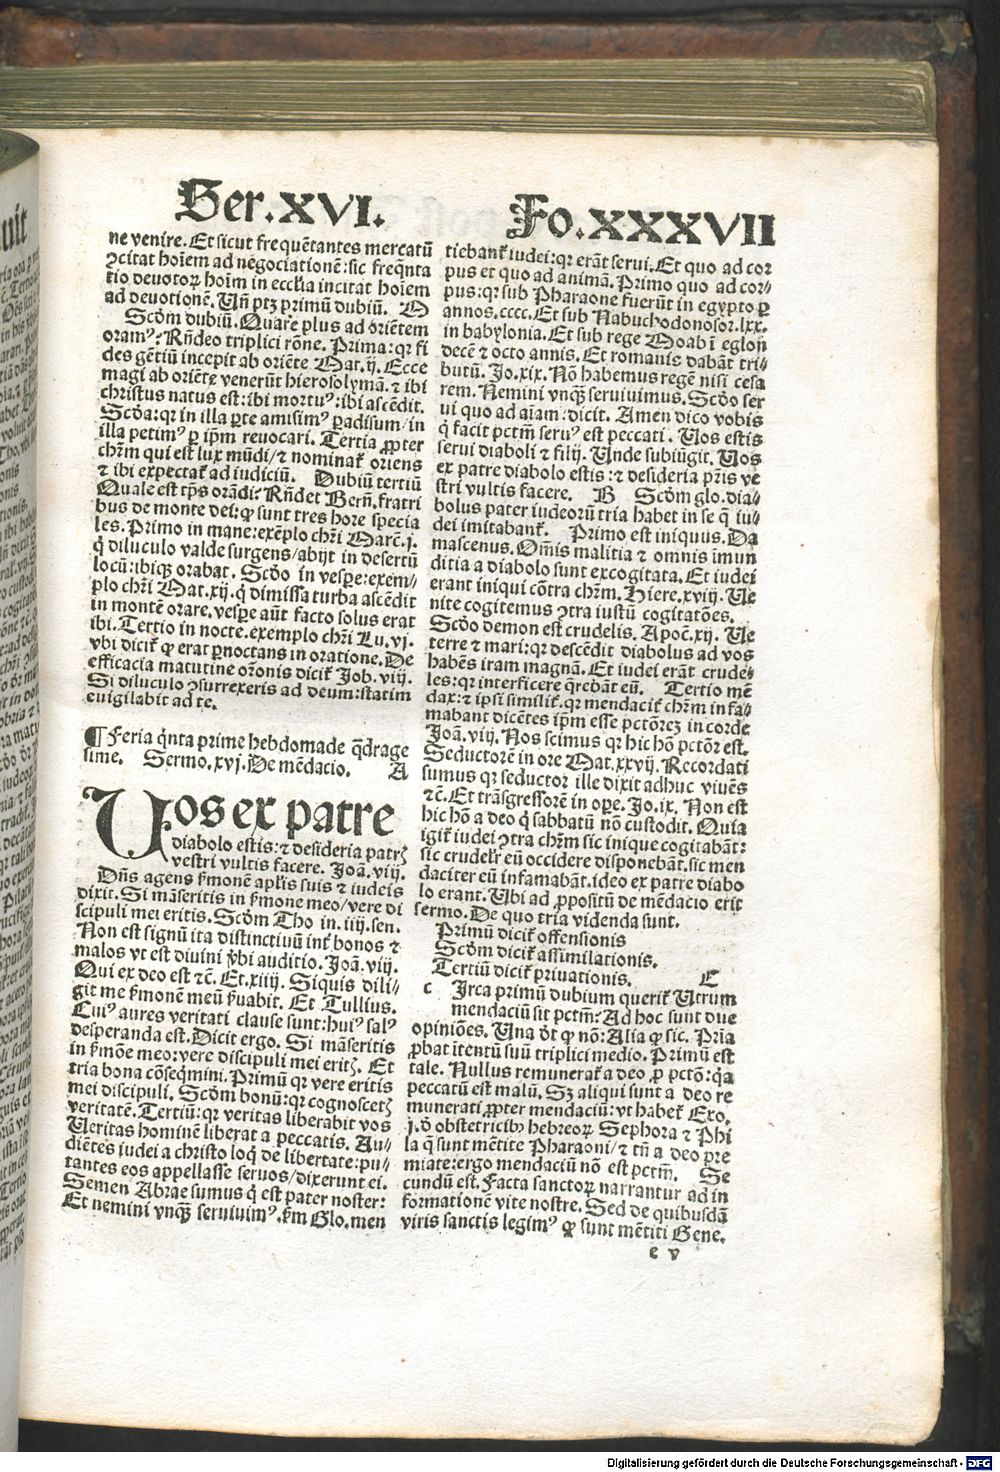 Ser.XVI.
Fo.XXXVII
ne venire. Et sicut frequētantes mercatū
ꝯcitat hoīem ad negociationē: sic freqnta
tio devotoꝝ hoīm in eccl'ia incitat hoīem
ad devotionē. Uñ ptꝫ primū dubiū. O
Scd'm dubiū. Quare plus ad oriētem
oramꝰ? Rñdeo triplici rōne. Prima: qꝛ fi
des gētiū incepit ab oriēte Mat.ij. Ecce
magi ab oriēte venerūt hierosolymā. ⁊ ibi
christus natus est: ibi mortuꝰ: ibi ascēdit.
Scd'a: qꝛ in illa ꝑte amisimꝰ ꝑadisum/in
illa petimꝰ ꝑ ip̄m revocari. Tertia ꝓpter
chr̄m qui est lux mūdi/⁊ nominat᷑ oriens
⁊ ibi expectat᷑ ad iudiciū. Dubiū tertiū
Quale est tp̄s orādi? Rñdet Bern̄. fratri
bus de monte dei: ꝙ sunt tres hore specia
les. Primo in mane: exēplo chr̄i Marc̄.j.
q̇ diluculo valde surgens/abijt in desertū
locū: ibiqꝫ orabat. Scd'o in vesꝑe: exem⸗
plo chr̄i Mat.xij. q̇ dimissa turba ascēdit
in montē orare. vesꝑe aūt facto solus erat
ibi. Tertio in nocte. exemplo chr̄i Lu.vj.
vbi dicit᷑ ꝙ erat ꝑnoctans in oratione. De
efficacia matutine or̄onis dicit᷑ Job.viij.
Si diluculo ꝯsurrexeris ad deum: statim
euigilabit ad te.
¶ Feria q̇nta prime hebdomade q̄drage
sime. Sermo.xvj. De mēdacio. A
Uos ex patre
diabolo estis: ⁊ desideria patrꝭ
vestri vultis facere. Joā.viij.
Dn̄s agens ẜmonē apl'is suis ⁊ iudeis
dixit. Si māseritis in ẜmone meo/vere di
scipuli mei eritis. Scd'm Tho in.iiij.sen.
Non est signū ita distinctivū int᷑ bonos ⁊
malos vt est divini v̓bi auditio. Joā.viij.
Qui ex deo est ⁊c̄. Et.xiiij. Siquis dili⸗
git me ẜmonē meū ẜuabit. Et Tullius.
Cuiꝰ aures veritati clause sunt: huiꝰ salꝰ
desperanda est. Dicit ergo. Si māseritis
in ẜmōe meo: vere discipuli mei eritꝭ. Et
tria bona cōseq̄mini. Primū qꝛ vere eritis
mei discipuli. Scd'm bonū: qꝛ cognoscetꝭ
veritatē. Tertiū: qꝛ veritas liberabit vos
Ueritas hominē liberat a peccatis. Au⸗
diētes iudei a christo loq̄ de libertate: pu⸗
tantes eos appellasse seruos/dixerunt ei.
Semen Abrae sumus q̇ est pater noster:
Et nemini vnqꝫ̄ seruiuimꝰ. ẜm Glo. men
tiebant᷑ iudei: qꝛ erāt serui. Et quo ad cor
pus et quo ad animā. Primo quo ad cor⸗
pus: qꝛ sub Pharaone fuerūt in egypto ꝑ
annos.cccc. Et sub Nabuchodonosor.lxx.
in babylonia. Et sub rege Moab ī eglon
decē ⁊ octo annis. Et romanis dabāt tri⸗
butū. Jo.xix. Nō habemus regē nisi cesa
rem. Nemini vnqꝫ̄ seruiuimus. Scd'o ser
ui quo ad aīam: dicit. Amen dico vobis
q̇ facit pctm̄ seruꝰ est peccati. Uos estis
serui diaboli ⁊ filij. Unde subiūgit. Uos
ex patre diabolo estis: ⁊ desideria pr̄is ve
stri vultis facere. B Scd'm glo. dia⸗
bolus pater iudeorū tria habet in se q̄ iu⸗
dei imitabant᷑. Primo est iniquus. Da
mascenus. Om̄is malitia ⁊ omnis imun
ditia a diabolo sunt excogitata. Et iudei
erant iniqui cōtra chr̄m. Hiere.xviij. Ue
nite cogitemus ꝯtra iustū cogitatōes.
Scd'o demon est crudelis. Apoc̄.xij. Ue
terre ⁊ mari: qꝛ descēdit diabolus ad vos
habēs iram magnā. Et iudei erāt crude⸗
les: qꝛ interficere q̄rebāt eū. Tertio mē
dax: ⁊ ipsi similit᷑. qꝛ mendacit᷑ chr̄m in fa⸗
mabant dicētes ip̄m esse pctōrez in corde
Joā.viij. Nos scimus qꝛ hic hō pctōr est.
Seductorē in ore Mat.xxvij. Recordati
sumus qꝛ seductor ille dixit adhuc viuēs
⁊c̄. Et trāsgressorē in oꝑe. Jo.ix. Non est
hic hō a deo q̇ sabbatū nō custodit. Quia
igit᷑ iudei ꝯtra chr̄m sic inique cogitabāt:
sic crudelr̄ eū occidere disponebāt. sic men
daciter eū infamabāt. ideo ex patre diabo
lo erant. Ubi ad ꝓpositū de mēdacio erit
sermo. De quo tria videnda sunt.
Primū dicit᷑ offensionis
Scd'm dicit᷑ assimilationis.
Tertiū dicit᷑ priuationis. C
c Irca primū dubium querit᷑ Utrum
mendaciū sit pctm̄? Ad hoc sunt due
opiniōes. Una dt̄ ꝙ nō: Alia ꝙ sic. Pr̄ia
ꝓbat ītentū suū triplici medio. Primū est
tale. Nullus remunerat᷑ a deo ꝓ pctō: q̄a
peccatū est malū. Sꝫ aliqui sunt a deo re
munerati ꝓpter mendaciū: vt habet᷑ Exo.
j. d̄ obstetricibꝰ hebreoꝝ Sephora ⁊ Phi
la q̄ sunt mētite Pharaoni/⁊ tn̄ a deo pre
miate: ergo mendaciū nō est pctm̄. Se
cundū est. Facta sanctoꝝ narrantur ad in
formationē vite nostre. Sed de quibusdā
viris sanctis legimꝰ ꝙ sunt mētiti Gene.
e v
Digitalisierung gefördert durch die Deutsche Forschungsgemeinschaft - DFG